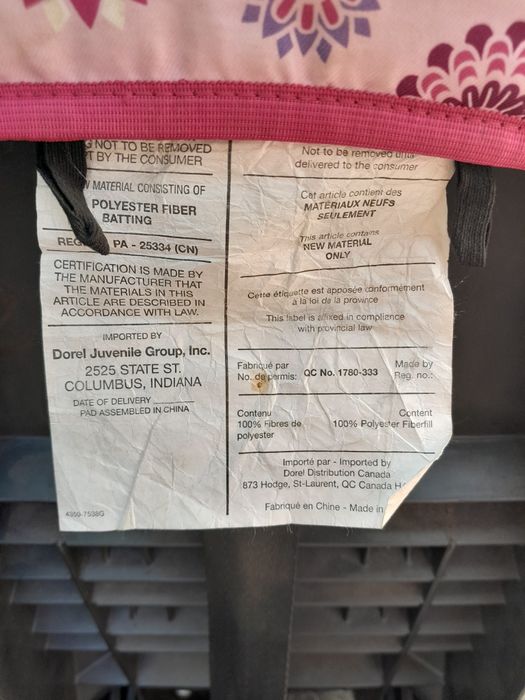 NOT TO BE REMOVED
BY THE CONSUMER
MATERIAL CONSISTING OF
POLYESTER FIBER
BATTING
REG PA - 25334 (CN)
CERTIFICATION IS MADE BY
THE MANUFACTURER THAT
THE MATERIALS IN THIS
ARTICLE ARE DESCRIBED IN
ACCORDANCE WITH LAW.
IMPORTED BY
Dorel Juvenile Group, Inc.
2525 STATE ST.
COLUMBUS, INDIANA
DATE OF DELIVERY
PAD ASSEMBLED IN CHINA
4350-7538G
Not to be removed until
delivered to the consumer
Cet article contient des
MATÉRIAUX NEUFS
SEULEMENT
This article contains
NEW MATERIAL
ONLY
Cette étiquette est apposée conformément
à la loi de la province
This label is affixed in compliance
with provincial law
Fabriqué par Made by
No. de permis: QC No. 1780-333 Reg. no.:
Contenu Content
100% Fibres de 100% Polyester Fiberfill
polyester
Importé par - Imported by
Dorel Distribution Canada
873 Hodge, St-Laurent, QC Canada H
Fabriqué en Chine - Made in